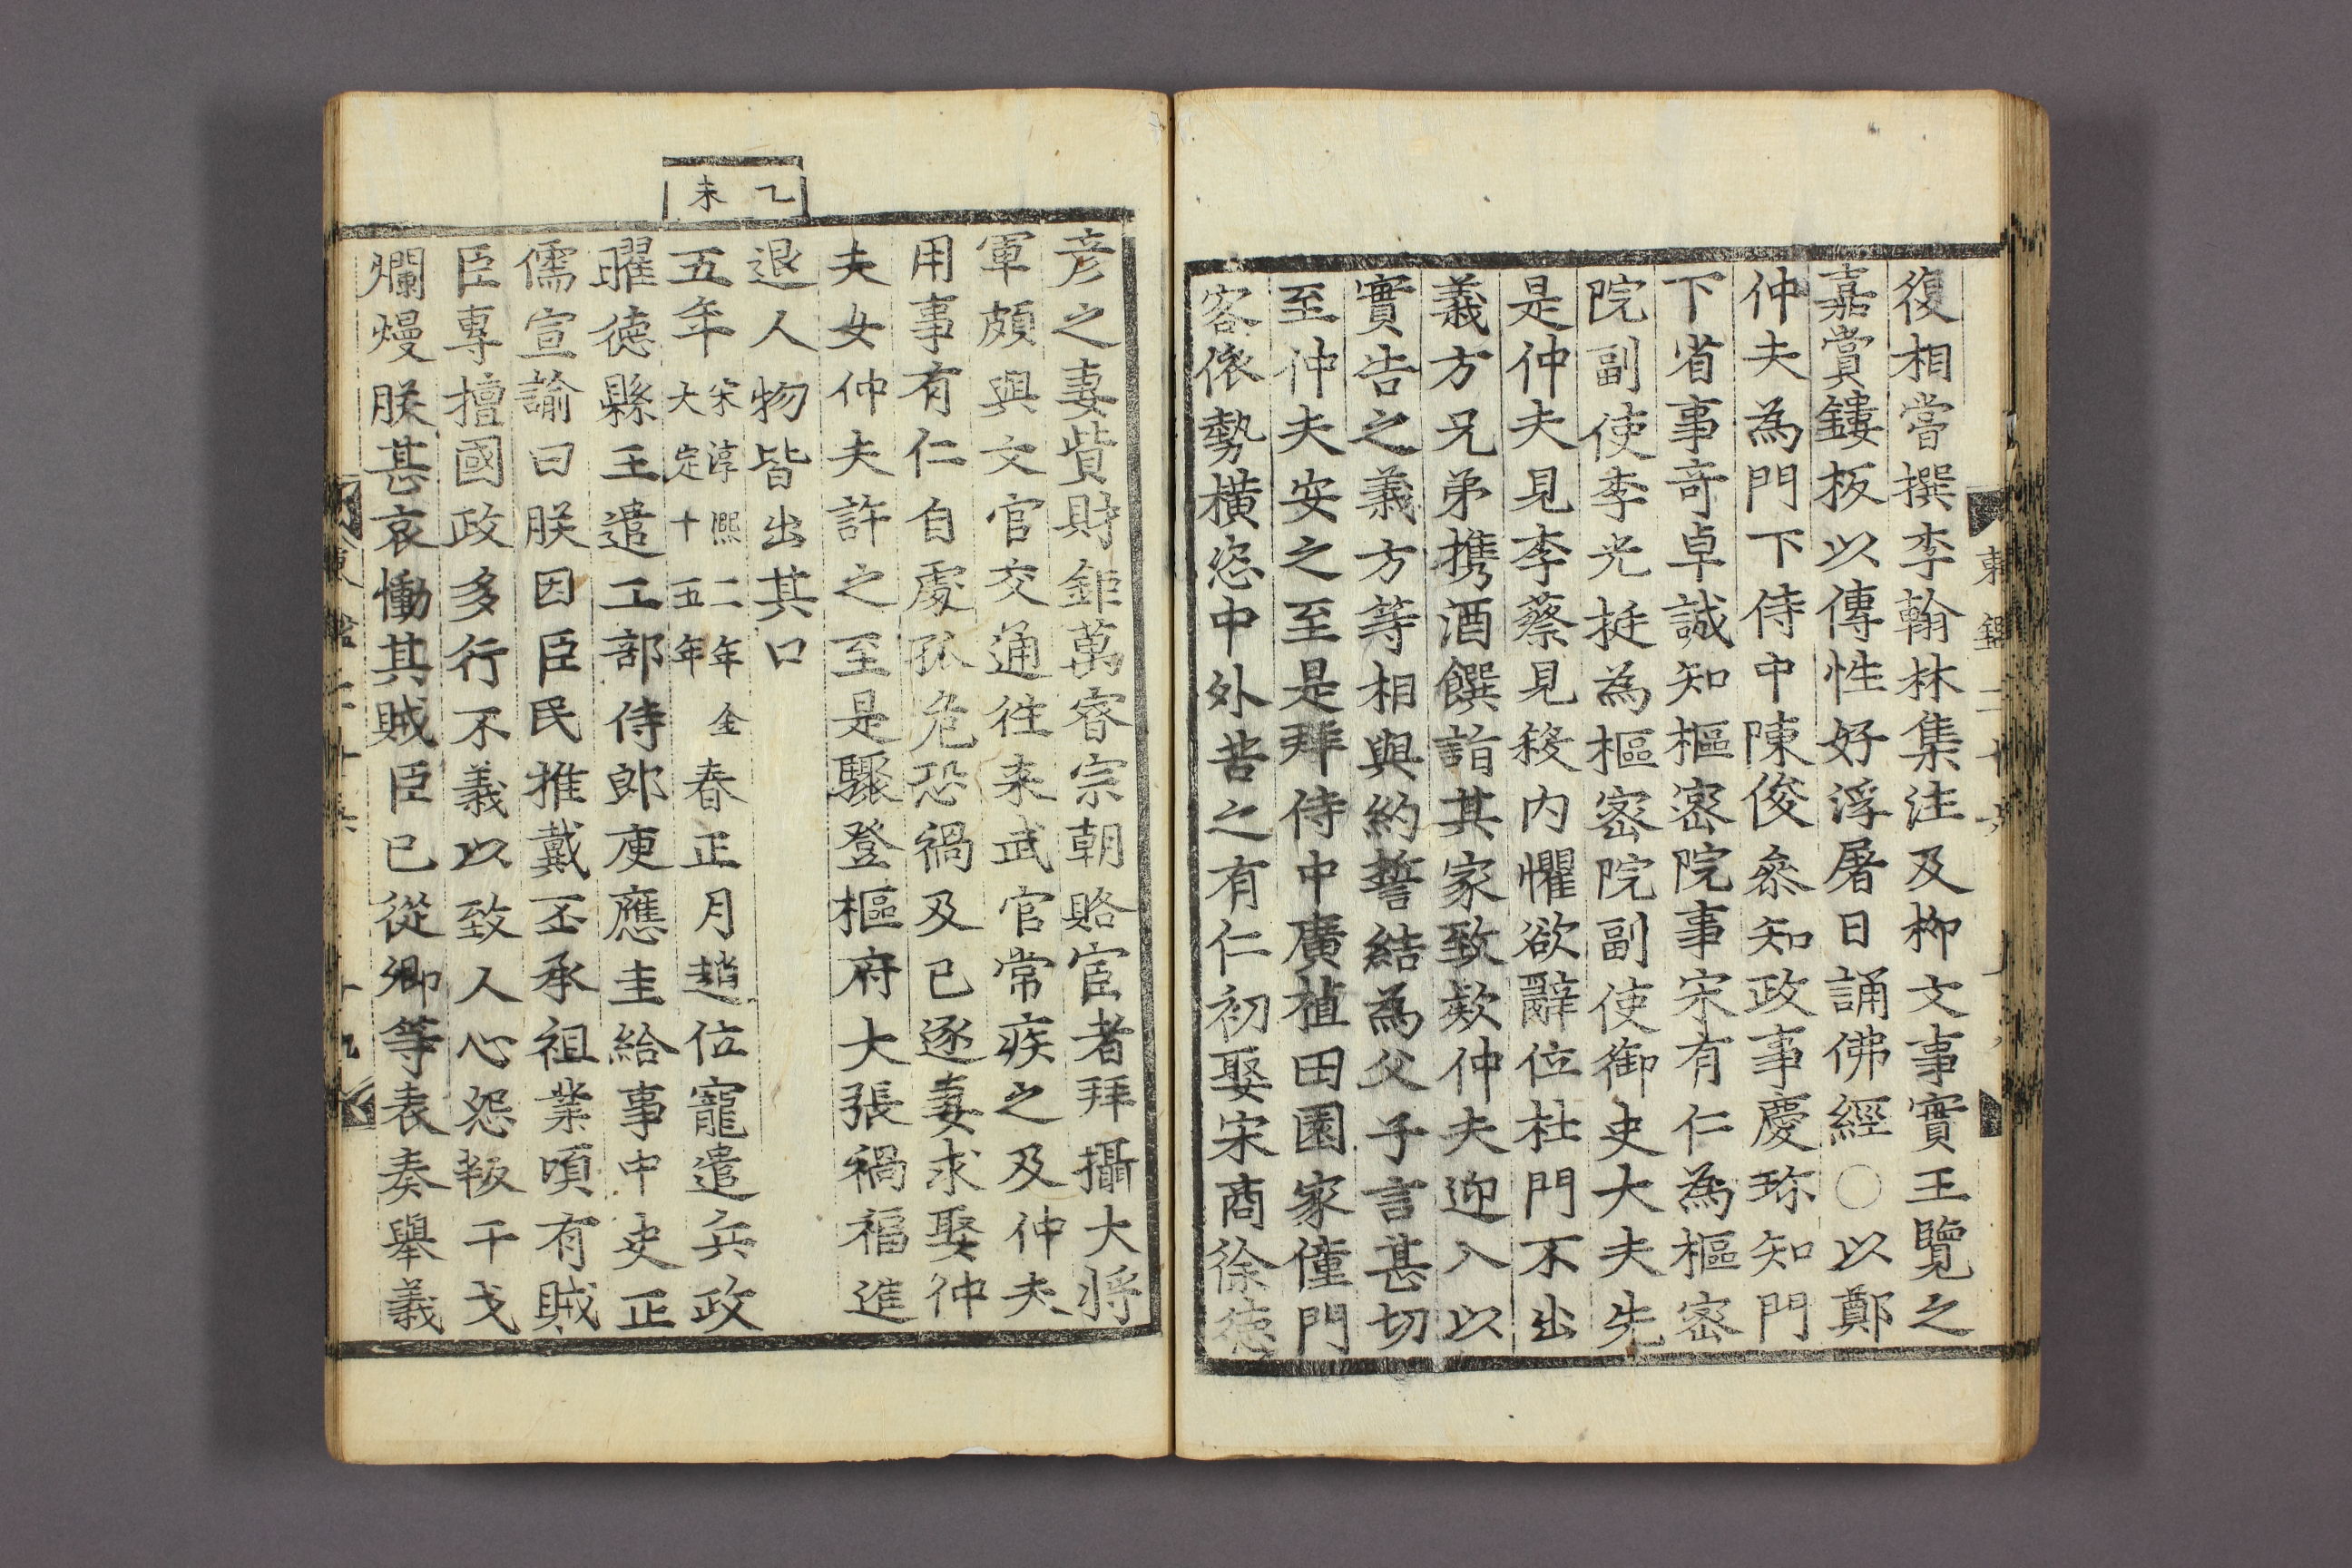 復相嘗撰李翰林集注及柳文事實王覽之
嘉賞鏤板以傳性好浮屠日誦佛經○以鄭
仲夫為門下侍中陳俊叅知政事慶珎知門
下省事奇卓誠知樞密院事宋有仁為樞密
院副使李光挺為樞密院副使御史大夫先
是仲夫見李蔡見殺內懼欲辭位杜門不出
義方兄弟携酒饌詣其家致欵仲夫迎入以
實告之義方等相與約誓結為父子言甚切
至仲夫安之至是拜侍中廣植田園家僮門
客依勢橫恣中外苦之有仁初娶宋商徐德
乙未
彦之妻貲財鉅萬睿宗朝賂宦者拜攝大将
軍頗與文官交通徃来武官常疾之及仲夫
用事有仁自處孤危恐禍及已逐妻求娶仲
夫女仲夫許之至是驟登樞府大張禍福進
退人物皆出其口
五年宋淳熙二年金大定十五年春正月趙位寵遣兵政
曜德縣王遣工部侍郎庾應圭給事中史正
儒宣諭曰朕因臣民推戴丕承祖業頃有賊
臣專擅國政多行不義以致人心怨叛干戈
爛熳朕甚哀慟其賊臣已從卿等表奏舉義